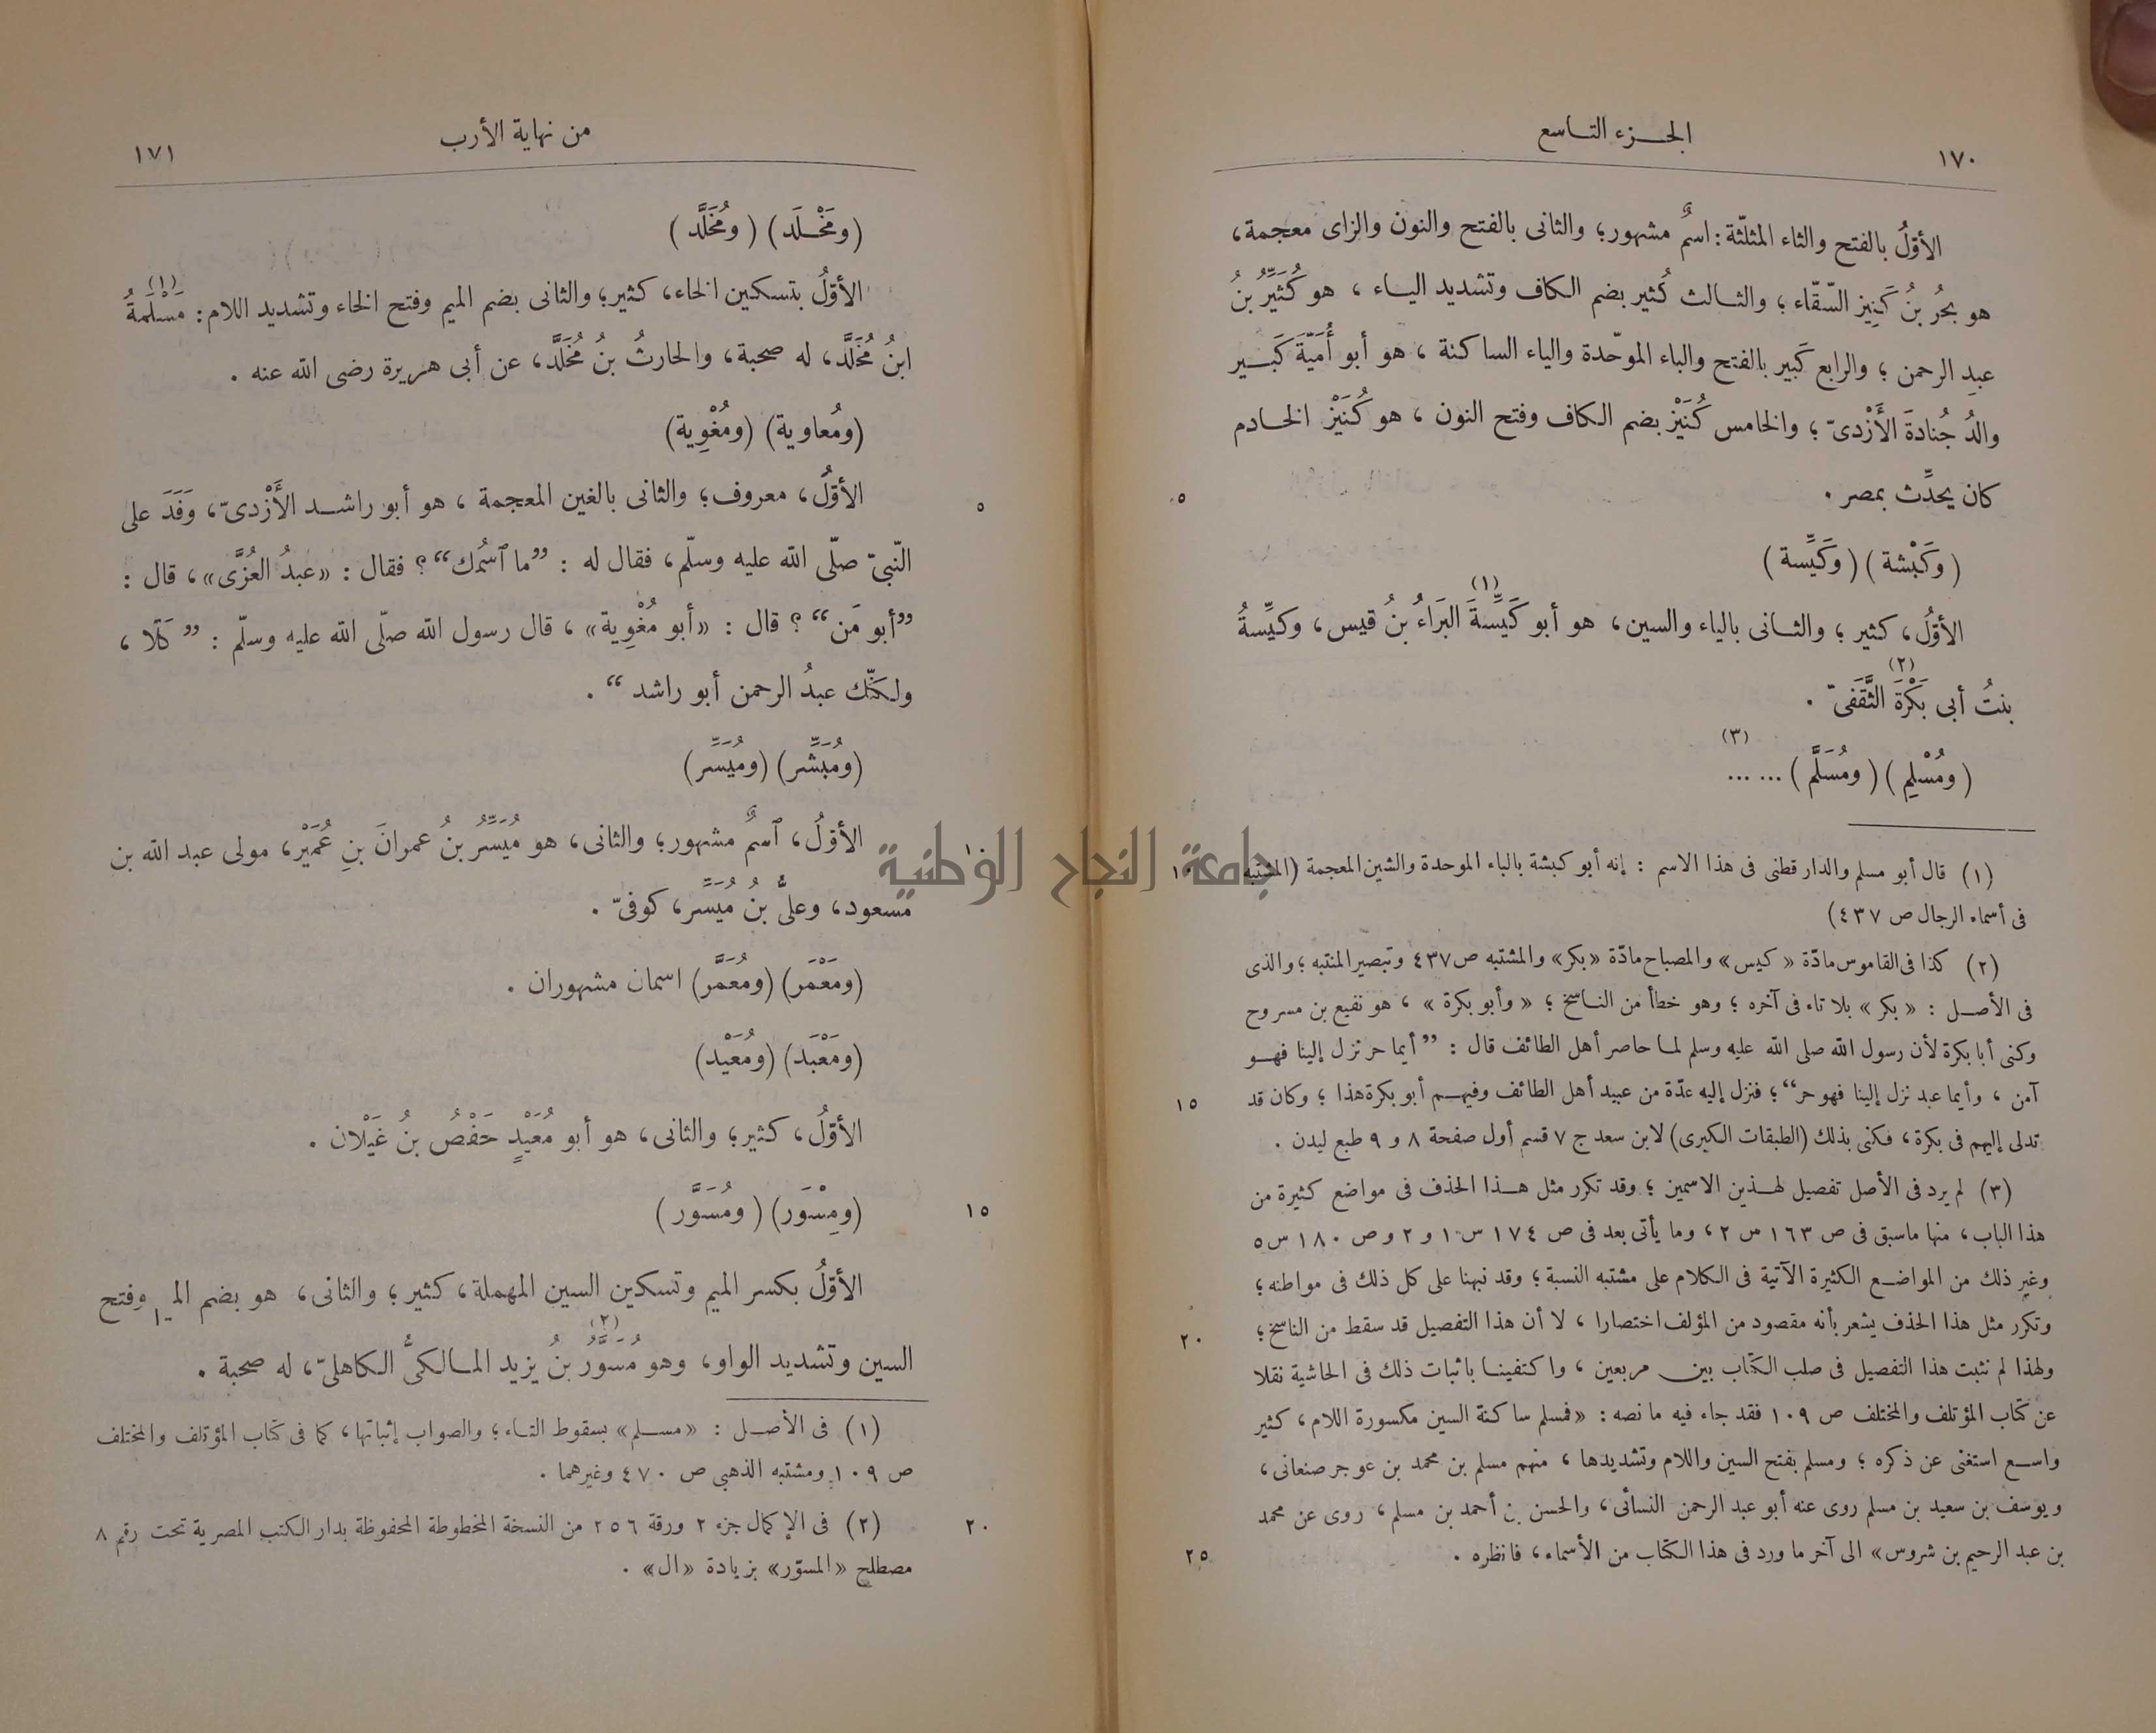 الجزء التاسع
١٧٠
الأوّلُ بالفتح والثاء المثلّثة: اسمٌ مشهور؛ والثانى بالفتح والنون والزاى معجمة،
هو بحُر بنُ كَنِيز السّقّاء؛ والثالث كُثير بضم الكاف وتشديد الياء، هو كُثَيِّرُ بنُ
عبدِ الرحمن؛ والرابع كَبير بالفتح والباء الموحّدة والياء الساكنة، هو أبو أُمَيّةَ كَبير
والدُ جُنادةَ الأَزْدىّ؛ والخامس كُنَيْز بضم الكاف وفتح النون، هو كُنَيْز الخادم
كان يحدِّث بمصر.
٥
(وكَبْشة) (وكَيِّسة)
الأوّلُ، كثير؛ والثانى بالياء والسين، هو أبو كَيِّسةَ (١) البَراءُ بنُ قيس، وكيِّسةُ
بنتُ أبى بَكْرَةَ (٢) الثَّقَفىّ.
(ومُسْلِم) (ومُسَلَّم) (٣) ... ...
(١) قال أبو مسلم والدار قطنى فى هذا الاسم: إنه أبو كبشة بالباء الموحدة والشين المعجمة (المشتبه
١٠
فى أسماء الرجال ص ٤٣٧)
(٢) كذا فى القاموس مادّة «كيس» والمصباح مادّة «بكر» والمشتبه ص ٤٣٧ وتبصير المنتبه؛ والذى
فى الأصل: «بكر» بلا تاء فى آخره؛ وهو خطأ من الناسخ؛ «وأبو بكرة»، هو نفيع بن مسروح
وكنى أبا بكرة لأن رسول الله صلى الله عليه وسلم لما حاصر أهل الطائف قال: ”أيما حر نزل إلينا فهو
آمن، وأيما عبد نزل إلينا فهو حر“؛ فنزل إليه عدّة من عبيد أهل الطائف وفيهم أبو بكرة هذا؛ وكان قد
١٥
تدلى إليهم فى بكرة، فكنى بذلك (الطبقات الكبرى) لابن سعد ج ٧ قسم أول صفحة ٨ و ٩ طبع ليدن.
(٣) لم يرد فى الأصل تفصيل لهذين الاسمين؛ وقد تكرر مثل هذا الحذف فى مواضع كثيرة من
هذا الباب، منها ما سبق فى ص ١٦٣ س ٢، وما يأتى بعد فى ص ١٧٤ س ١ و ٢ و ص ١٨٠ س ٥
وغير ذلك من المواضع الكثيرة الآتية فى الكلام على مشتبه النسبة؛ وقد نبهنا على كل ذلك فى مواطنه؛
وتكرّر مثل هذا الحذف يشعر بأنه مقصود من المؤلف اختصارا، لا أن هذا التفصيل قد سقط من الناسخ؛
٢٠
ولهذا لم نثبت هذا التفصيل فى صلب الكتاب بين مربعين، واكتفينا باثبات ذلك فى الحاشية نقلا
عن كتاب المؤتلف والمختلف ص ١٠٩ فقد جاء فيه ما نصه: «فمسلم ساكنة السين مكسورة اللام، كثير
واسع استغنى عن ذكره؛ ومسلم بفتح السين واللام وتشديدها، منهم مسلم بن محمد بن عوجر صنعانى،
ويوسف بن سعيد بن مسلم روى عنه أبو عبد الرحمن النسائى، والحسن بن أحمد بن مسلم، روى عن محمد
بن عبد الرحيم بن شروس» الى آخر ما ورد فى هذا الكتاب من الأسماء، فانظره.
٢٥
من نهاية الأرب
١٧١
(ومَخْلَد) (ومُخَلَّد)
الأوّلُ بتسكين الخاء، كثير؛ والثانى بضم الميم وفتح الخاء وتشديد اللام: مَسْلَمةُ (١)
ابنُ مُخَلَّد، له صحبة، والحارثُ بنُ مُخَلَّد، عن أبى هريرة رضى الله عنه.
(ومُعاوية) (ومُغْوِية)
الأوّلُ، معروف؛ والثانى بالغين المعجمة، هو أبو راشد الأَزْدىّ، وَفَدَ على
٥
النّبىّ صلّى الله عليه وسلّم، فقال له: ”ما ٱسْمُك“؟ فقال: «عبدُ العُزَّى»، قال:
”أبو مَن“؟ قال: «أبو مُغْوِية»، قال رسول الله صلّى الله عليه وسلّم: ”كَلّا،
ولكنّك عبدُ الرحمن أبو راشد“.
(ومُبَشِّر) (ومُيَسِّر)
الأوّلُ، ٱسمٌ مشهور؛ والثانى، هو مُيَسِّرُ بنُ عمرانَ بنِ عُمَيْر، مولى عبد الله بن
١٠
مسعود، وعلىُّ بنُ مُيَسِّر، كوفىّ.
(ومَعْمَر) (ومُعَمَّر) اسمان مشهوران.
(ومَعْبَد) (ومُعَيْد)
الأوّلُ، كثير؛ والثانى، هو أبو مُعَيْدٍ حَفْصُ بنُ غَيْلان.
(ومِسْوَر) (ومُسَوَّر)
١٥
الأوّلُ بكسر الميم وتسكين السين المهملة، كثير؛ والثانى، هو بضم الميم وفتح
السين وتشديد الواو، وهو مُسَوَّرُ (٢) بنُ يزيد المالكىُّ الكاهلىّ، له صحبة.
(١) فى الأصل: «مسلم» بسقوط التاء؛ والصواب إثباتها، كما فى كتاب المؤتلف والمختلف
ص ١٠٩ ومشتبه الذهبي ص ٤٧٠ وغيرهما.
(٢) فى الإكمال جزء ٢ ورقة ٢٥٦ من النسخة المخطوطة المحفوظة بدار الكتب المصرية تحت رقم ٨
٢٠
مصطلح «المسوّر» بزيادة «ال».
جامعة النجاح الوطنية